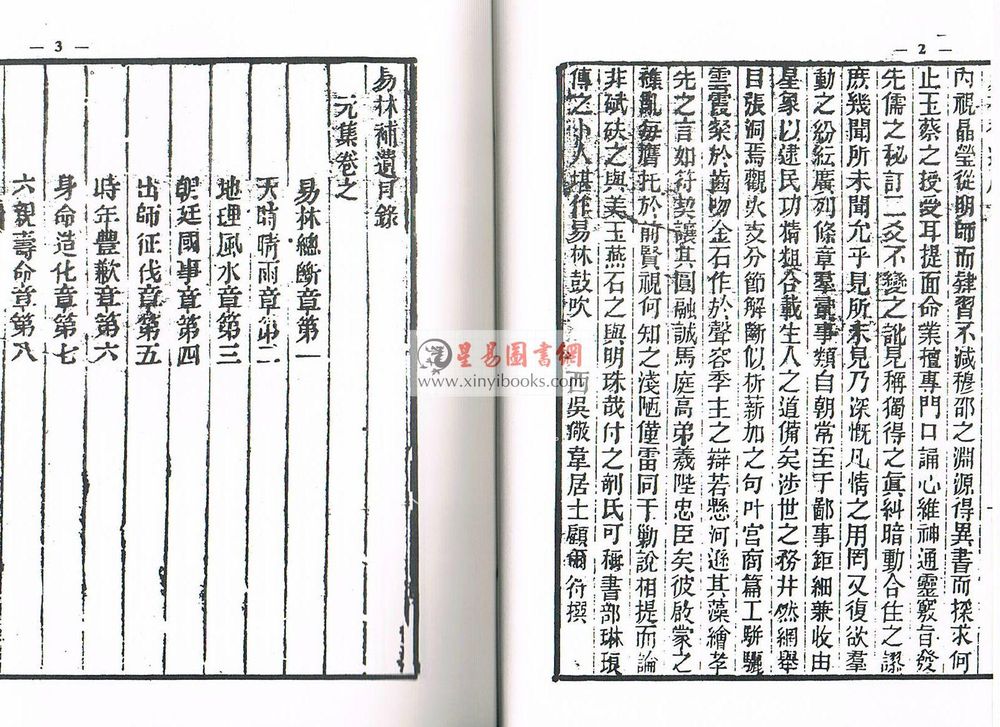 — 2 —
內視晶瑩從明師而肄習不減穆邵之淵源得異書而探求何
止玉蔡之授受耳提面命業擅專門口誦心維神通靈竅旨發
先儒之秘訂二爻不變之訛見稱獨得之真糾暗動合住之謬
庶幾聞所未聞允乎見所未見乃深慨凡情之用罔又復欲羣
動之紛紜廣列條章羣彚事類自朝常至于鄙事鉅細兼收由
星象以逮民功精粗合載生人之道備矣涉世之務井然網舉
目張洞焉觀火支分節解斷似析薪加之句叶宮商篇工駢驪
雲霞粲於齒吻金石作於聲容季主之辯若懸河遜其藻繪孝
先之言如符契讓其圓融誠馬庭高弟羲陛忠臣矣彼啟蒙之
襍亂每贋托於前賢視何知之淺陋僅雷同于勦說相提而論
非碔砆之與美玉燕石之與明珠哉付之剞氏可稱書部琳琅
傳之小人堪作易林鼓吹
西吳儆韋居士顧爾行撰
— 3 —
易林補遺目錄
元集卷之
易林總斷章第一
天時晴雨章第二
地理風水章第三
朝廷國事章第四
出師征伐章第五
時年豐歉章第六
身命造化章第七
六親壽命章第八
星易圖書網
www.xinyibooks.com